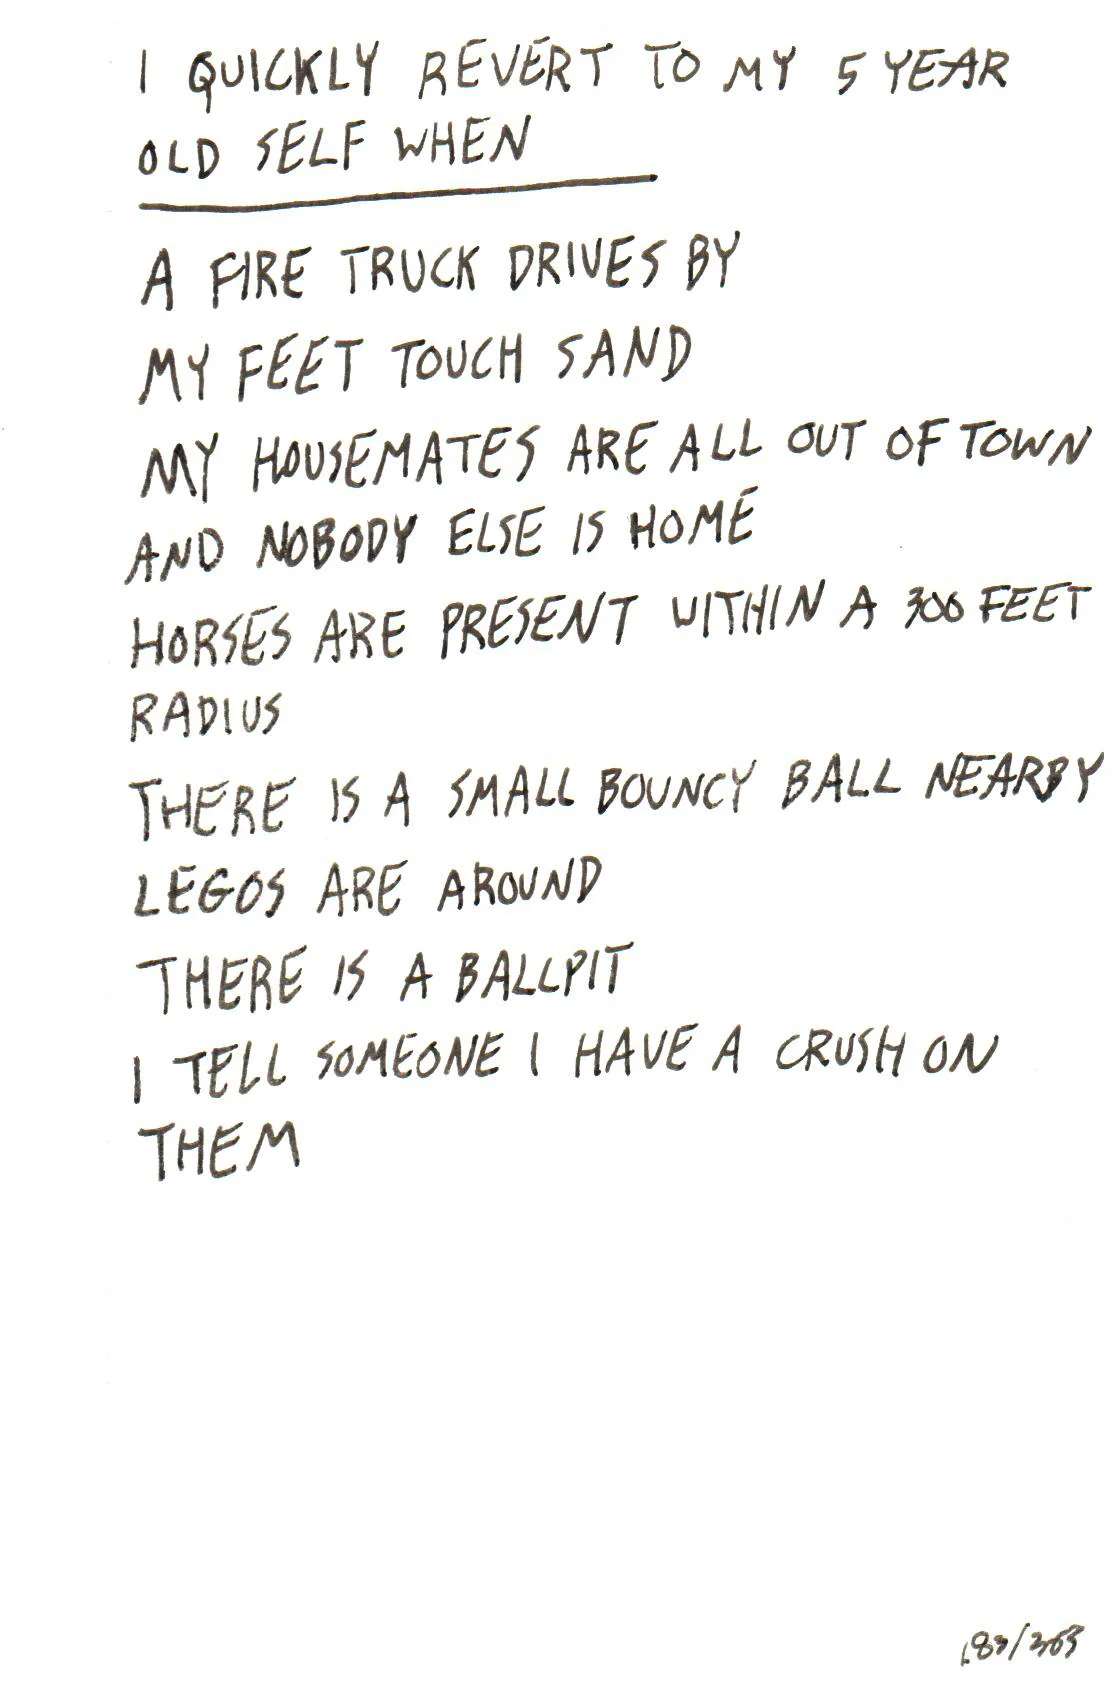 I QUICKLY REVERT TO MY 5 YEAR
OLD SELF WHEN
A FIRE TRUCK DRIVES BY
MY FEET TOUCH SAND
MY HOUSEMATES ARE ALL OUT OF TOWN
AND NOBODY ELSE IS HOME
HORSES ARE PRESENT WITHIN A 300 FEET
RADIUS
THERE IS A SMALL BOUNCY BALL NEARBY
LEGOS ARE AROUND
THERE IS A BALLPIT
I TELL SOMEONE I HAVE A CRUSH ON
THEM